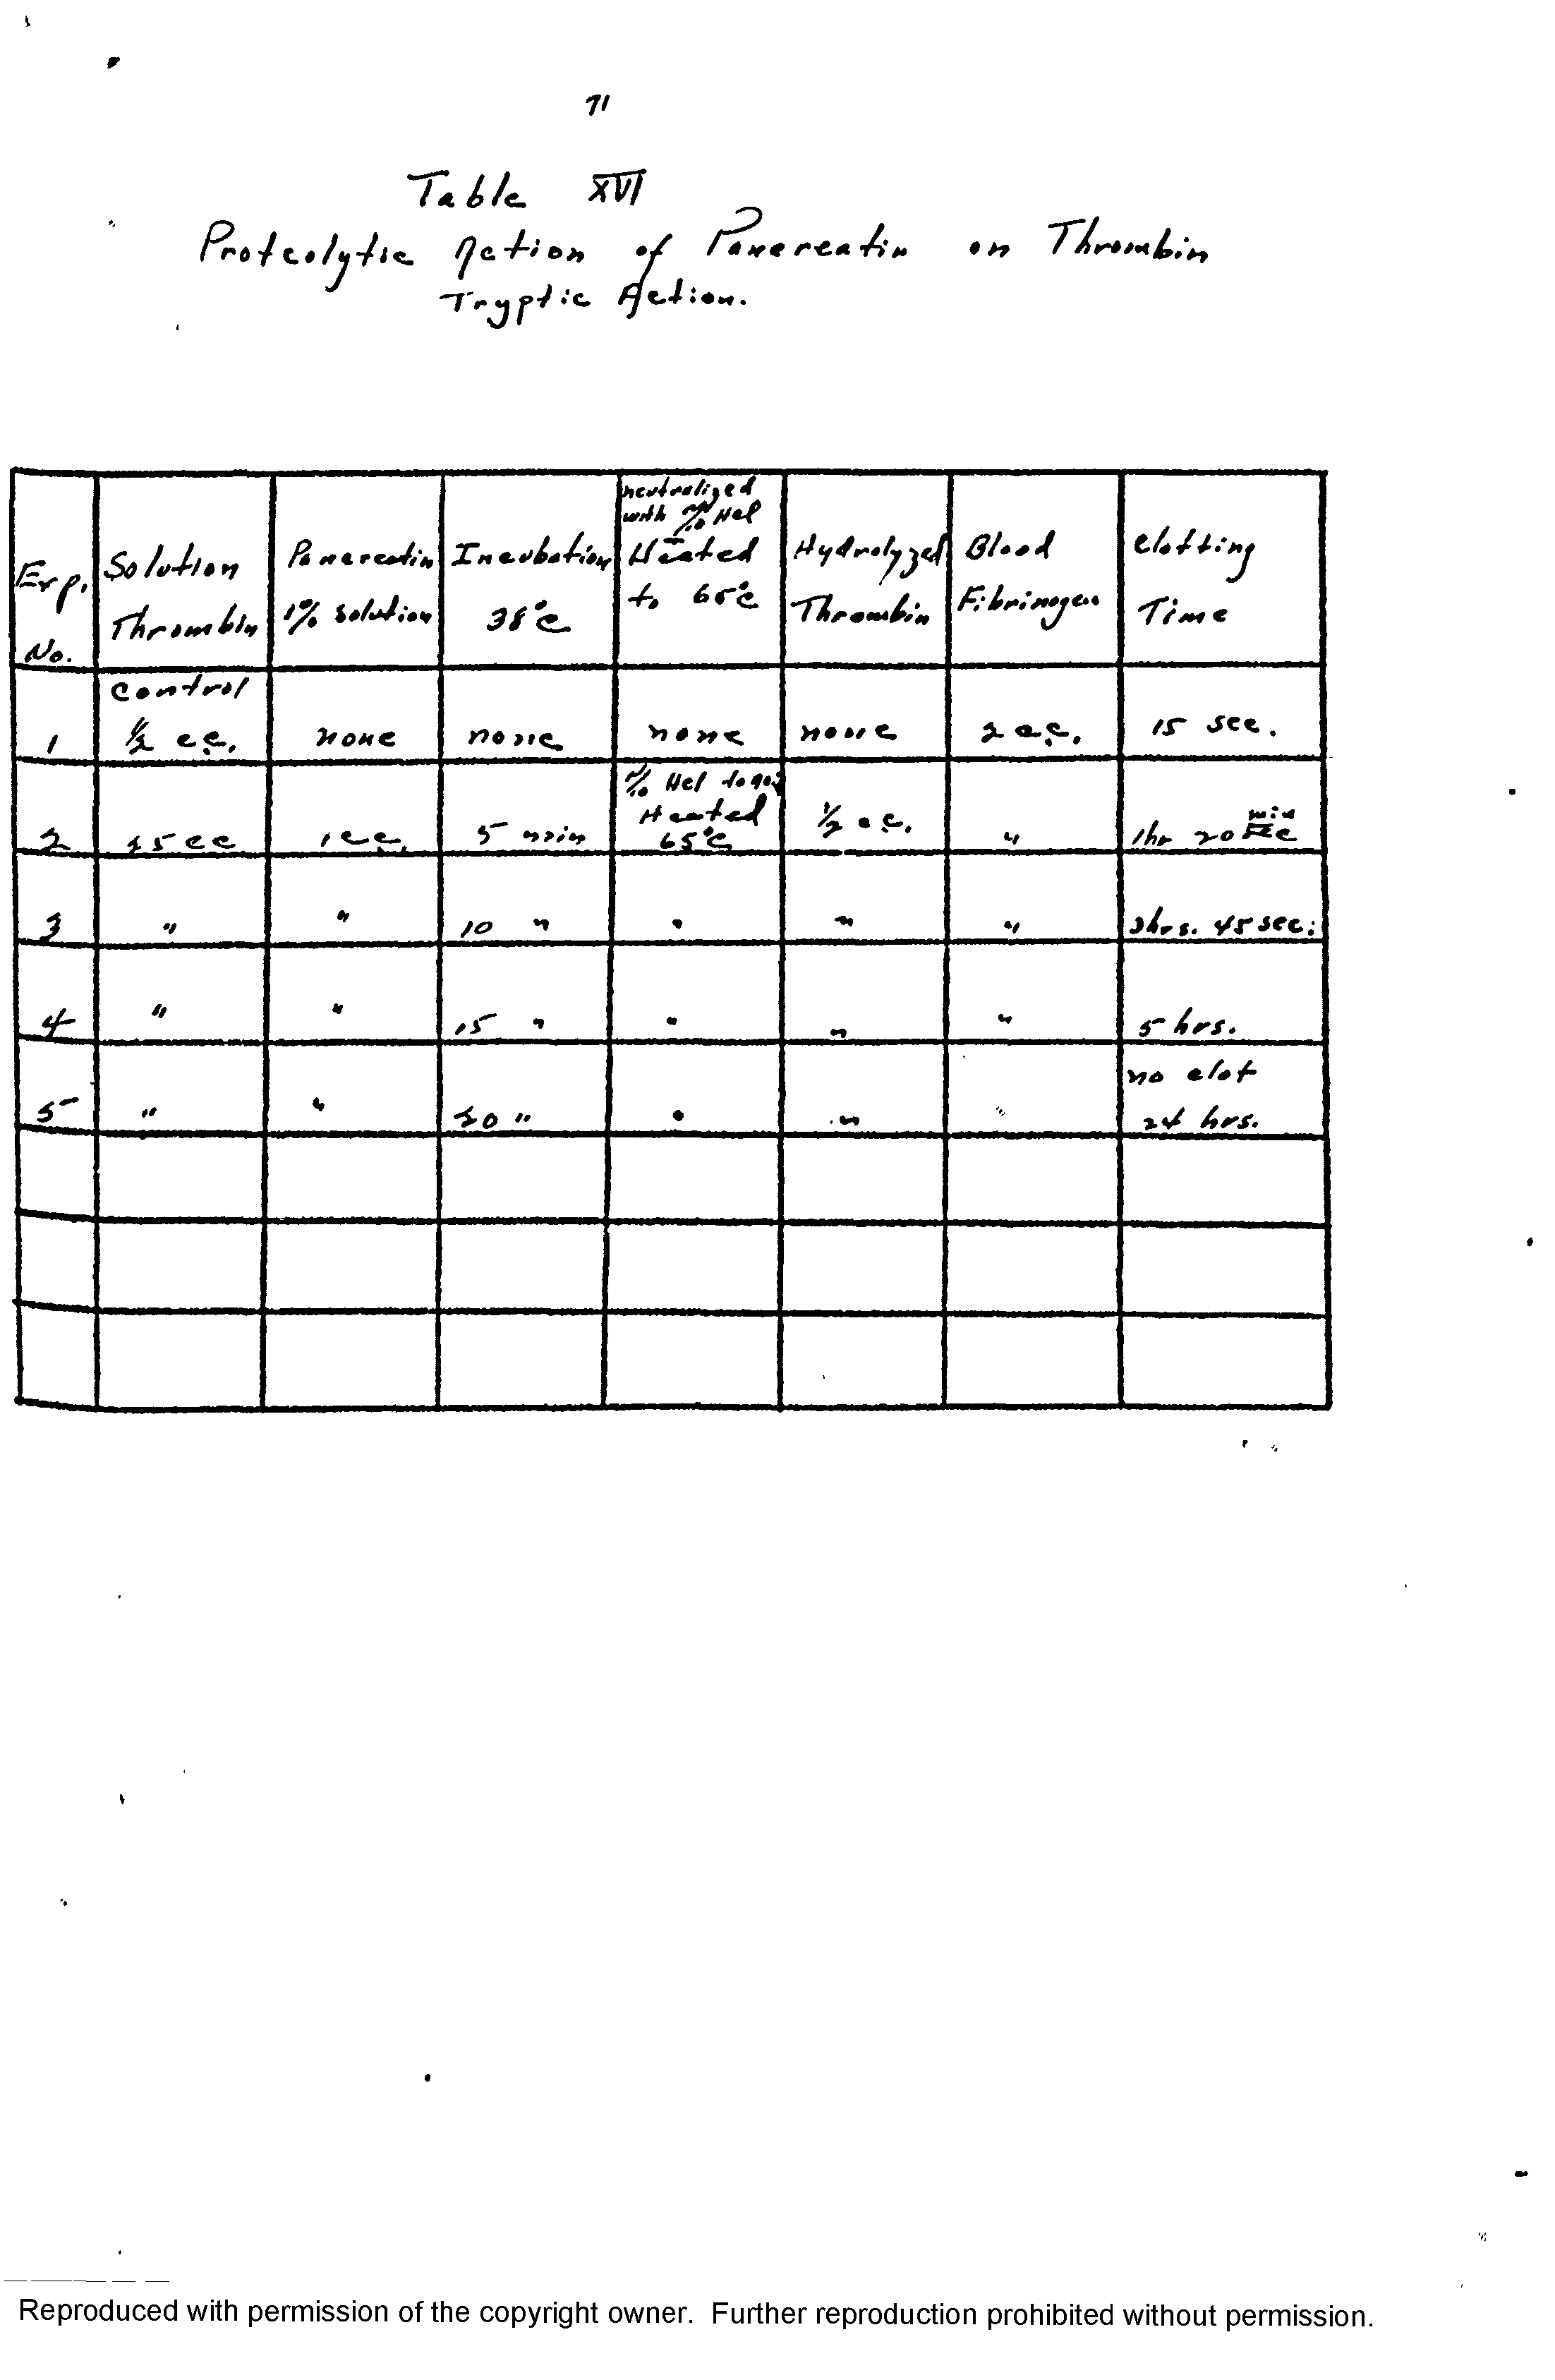 71
Table XVI
Proteolytic Action of Pancreatin on Thrombin
Tryptic Action.
Exp. No. Solution Thrombin Pancreatin 1% solution Incubation 38°C neutralized with N/10 Hcl Heated to 65°C Hydrolyzed Thrombin Blood Fibrinogen Clotting Time
1 control ½ cc. none none none none 2 cc. 15 sec.
2 15 cc 1 cc. 5 min N/10 Hcl to Heated 65°C ½ cc. " 1hr 20 min
3 " " 10 " " " " 3hrs. 45 sec.
4 " " 15 " " " " 5 hrs.
5 " " 20 " " " " no clot 24 hrs.
Reproduced with permission of the copyright owner. Further reproduction prohibited without permission.